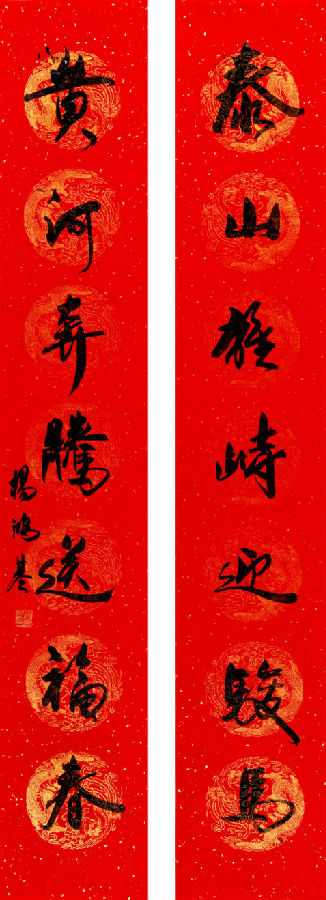 泰山雄峙迎骏马
黄河奔腾送福春
杨鸿基